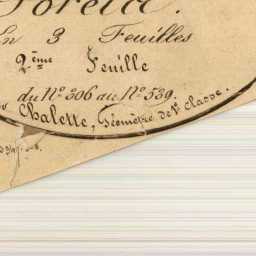 En 3 Feuilles
2ème Feuille
du Nº 306 au Nº 539.
Chalette, Géomètre de 1e classe.